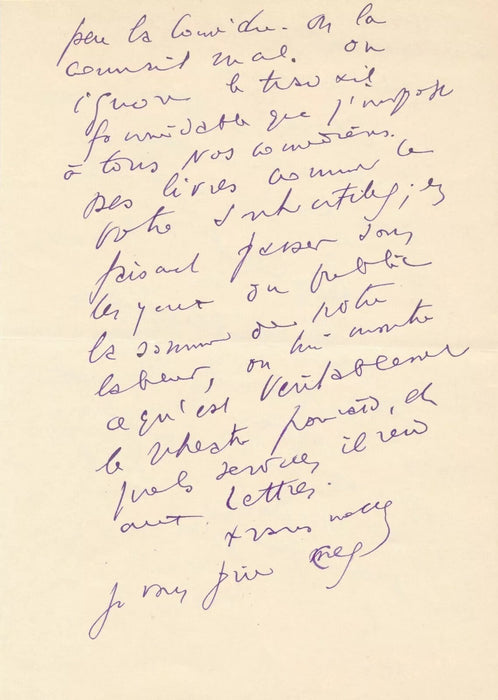 peu la Comédie. On la
connait mal. on
ignore le travail
formidable que j'impose
à tous nos comédiens.
Des livres comme le
votre sont utiles; en
faisant passer sous
les yeux du public
la somme de notre
labeur, on lui montre
ce qu'est véritablement
le théâtre français, et
quels services il rend
aux Lettres.
je vous prie